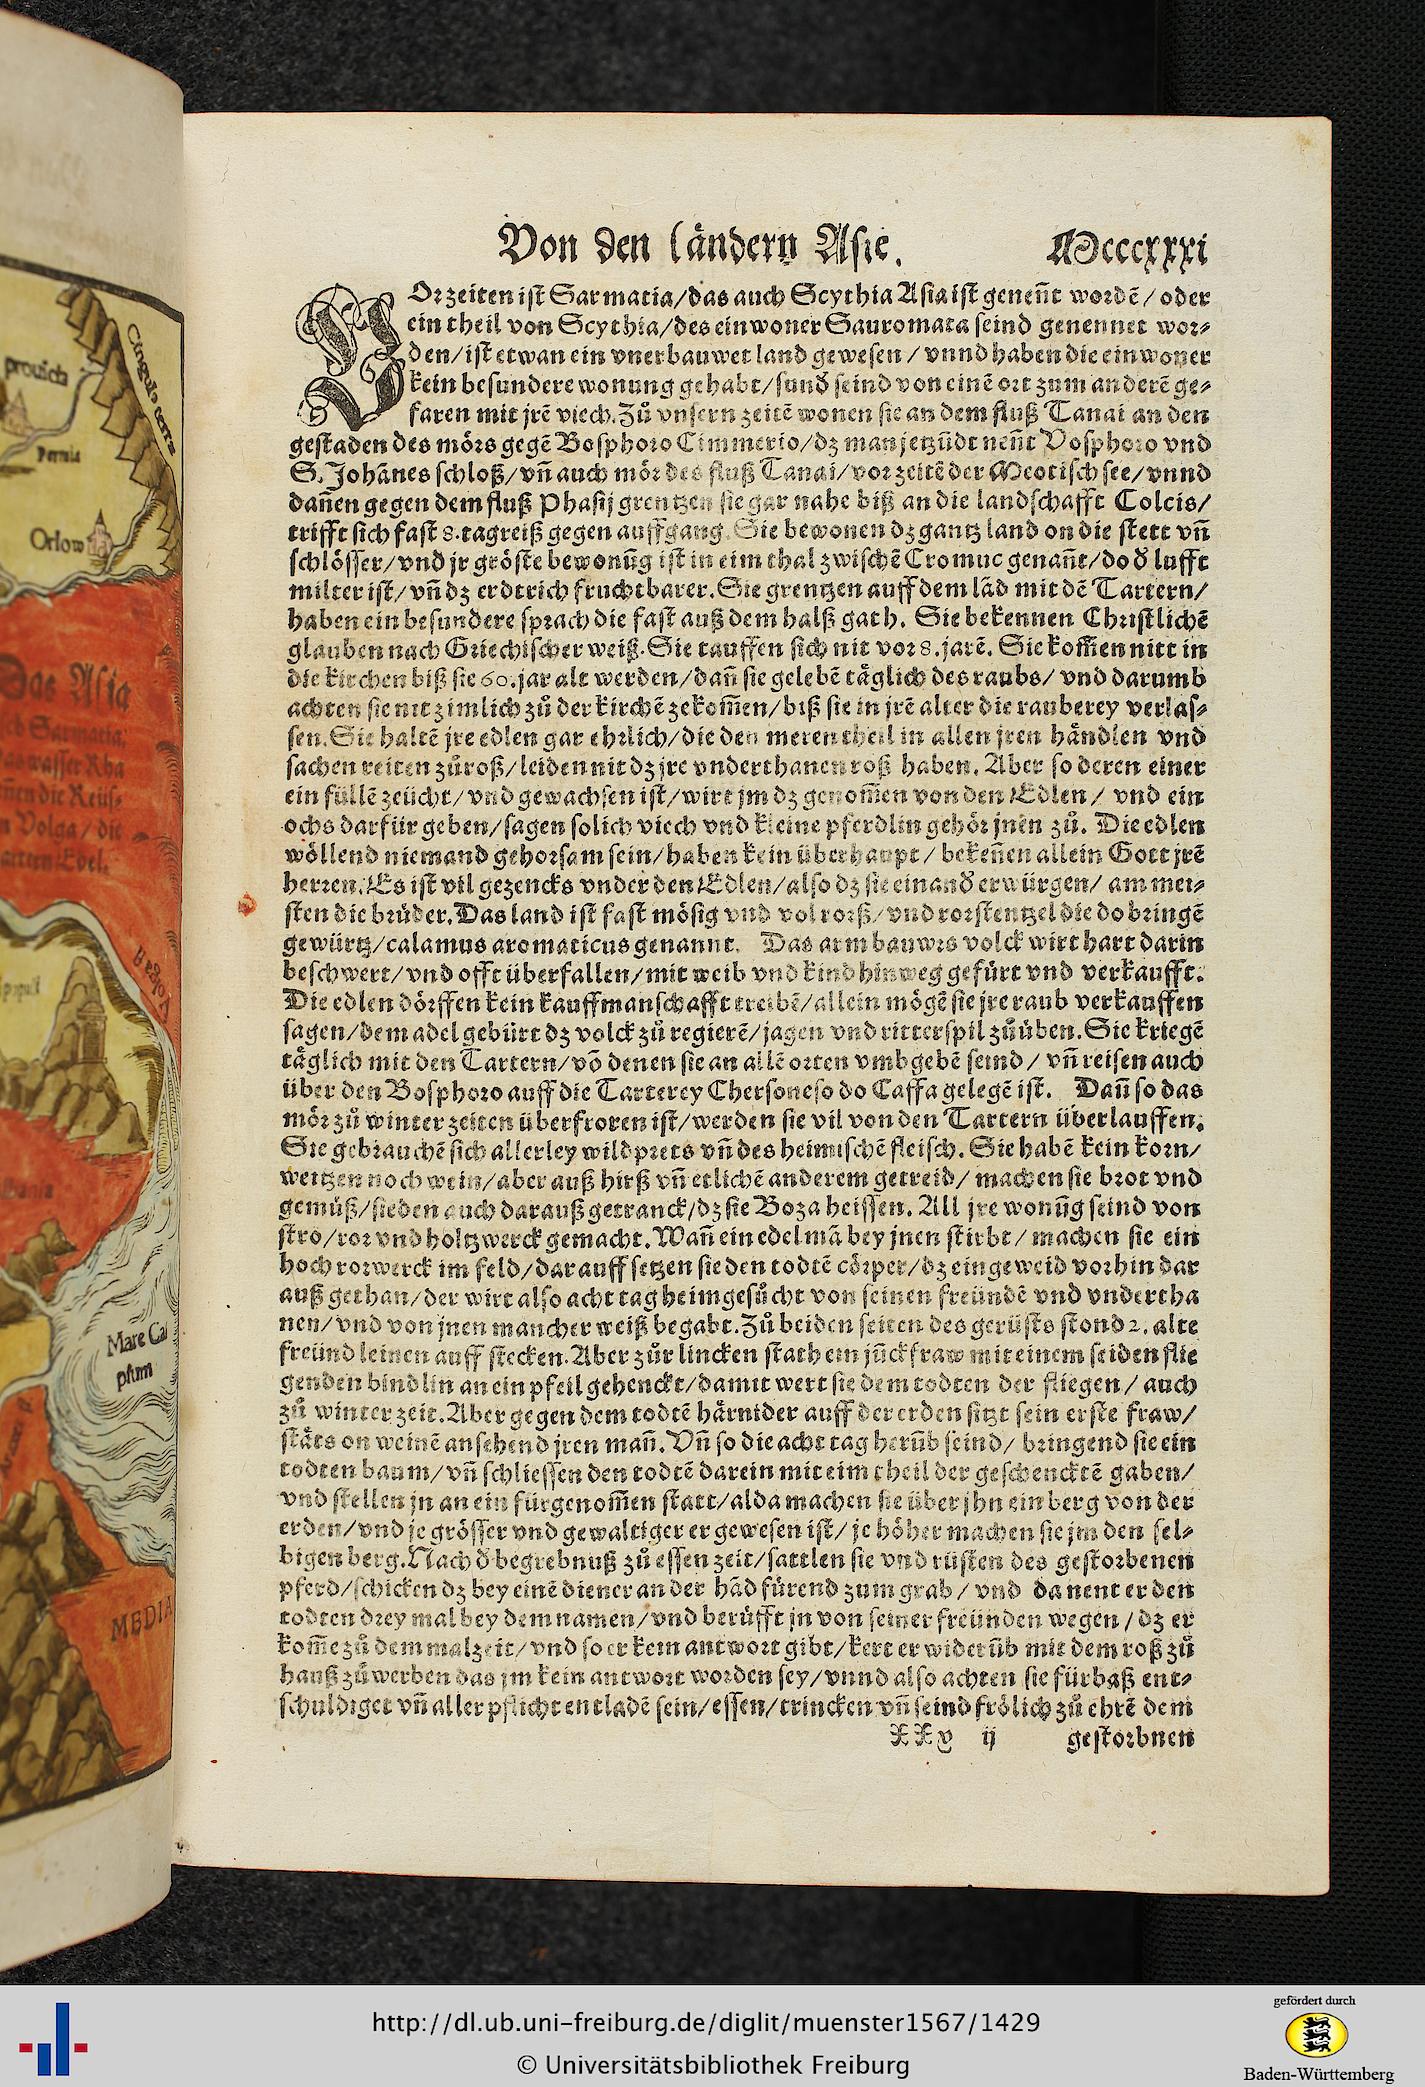 prouicia
Cingulū terrę
Permia
Orlow
Das Asia
Sarmatia,
das wasser Rha
nen die Reüs-
Volga / die
Edel.
Volga fl.
Mare Ca
pium
MEDIA
Von den ländern Asie.
Mcccxxxi
VOrzeiten ist Sarmatia/das auch Scythia Asia ist geneñt wordē/oder
ein theil von Scythia/des einwoner Sauromata seind genennet wor-
den/ist etwan ein vnerbauwet land gewesen/vnnd haben die einwoner
kein besundere wonung gehabt/sund seind von einē ort zum anderē ge-
faren mit jrē viech. Zů vnsern zeitē wonen sie an dem fluß Tanai an den
gestaden des mörs gegē Bosphoro Cimmerio/dz man jetzūdt neñt Vosphoro vnd
S. Johānes schloß/vñ auch mör des fluß Tanai/vor zeitē der Meotisch see/vnnd
dañen gegen dem fluß Phasij grentzen sie gar nahe biß an die landschafft Colcis/
trifft sich fast 8.tagreiß gegen auffgang. Sie bewonen dz gantz land on die stett vñ
schlösser/vnd jr gröste bewonūg ist in eim thal zwischē Cromuc genañt/do d lufft
milter ist/vñ dz erdtrich fruchtbarer. Sie grentzen auff dem lād mit dē Tartern/
haben ein besundere sprach die fast auß dem halß gath. Sie bekennen Christlichē
glauben nach Griechischer weiß. Sie tauffen sich nit vor 8.jarē. Sie kom̄en nitt in
die kirchen biß sie 60.jar alt werden/dañ sie gelebē täglich des raubs/vnd darumb
achten sie nit zimlich zů der kirchē zekom̄en/biß sie in jrē alter die rauberey verlas-
sen. Sie haltē jre edlen gar ehrlich/die den meren theil in allen jren händlen vnd
sachen reiten zůroß/leiden nit dz jre vnderthanen roß haben. Aber so deren einer
ein füllē zeücht/vnd gewachsen ist/wirt jm dz genom̄en von den Edlen/vnd ein
ochs darfür geben/sagen solich viech vnd kleine pferdlin gehör jnēn zů. Die edlen
wöllend niemand gehorsam sein/haben kein überhaupt/bekeñen allein Gott jrē
herren. Es ist vil gezencks vnder den Edlen/also dz sie einand erwürgen/am mei-
sten die brüder. Das land ist fast mösig vnd vol rorß/vnd rorstentzel die do bringē
gewürtz/calamus aromaticus genannt. Das arm bauwrs volck wirt hart darin
beschwert/vnd offt überfallen/mit weib vnd kind hinweg gefürt vnd verkaufft.
Die edlen dörffen kein kauffmanschafft treibē/allein mögē sie jre raub verkauffen
sagen/dem adel gebürt dz volck zů regierē/jagen vnd ritterspil zůüben. Sie kriegē
täglich mit den Tartern/vō denen sie an allē orten vmbgebē seind/vñ reisen auch
über den Bosphoro auff die Tarterey Chersoneso do Caffa gelegē ist. Dañ so das
mör zů winter zeiten überfroren ist/werden sie vil von den Tartern überlauffen.
Sie gebrauchē sich allerley wildprets vñ des heimischē fleisch. Sie habē kein korn/
weitzen noch wein/aber auß hirß vñ etlichē anderem getreid/machen sie brot vnd
gemüß/sieden auch darauß getranck/dz sie Boza heissen. All jre wonūg seind von
stro/ror vnd holtzwerck gemacht. Wañ ein edel mā bey jnen stirbt/machen sie ein
hoch rorwerck im feld/darauff setzen sie den todtē cörper/dz eingeweid vorhin dar
auß gethan/der wirt also acht tag heimgesůcht von seinen freündē vnd vndertha
nen/vnd von jnen mancher weiß begabt. Zů beiden seiten des gerüsts stond 2. alte
freünd leinen auff stecken. Aber zůr lincken stath ein jūckfraw mit einem seiden flie
genden bindlin an ein pfeil gehenckt/damit wert sie dem todten der fliegen/auch
zů winter zeit. Aber gegen dem todtē härnider auff der erden sitzt sein erste fraw/
stäts on weinē ansehend jren mañ. Vñ so die acht tag herūb seind/bringend sie ein
todten baum/vñ schliessen den todtē darein mit eim theil der geschencktē gaben/
vnd stellen jn an ein fürgenom̄en statt/alda machen sie über jhn ein berg von der
erden/vnd je grösser vnd gewaltiger er gewesen ist/je höher machen sie jm den sel-
bigen berg. Nach d begrebnuß zů essen zeit/sattlen sie vnd rüsten des gestorbenen
pferd/schicken dz bey einē diener an der hād fürend zum grab/vnd da nent er den
todten drey mal bey dem namen/vnd berüfft jn von seiner freünden wegen/dz er
kom̄e zů dem malzeit/vnd so er kein antwort gibt/kert er widerūb mit dem roß zů
hauß zůwerben das jm kein antwort worden sey/vnnd also achten sie fürbaß ent-
schuldiget vñ aller pflicht entladē sein/essen/trincken vñ seind frölich zů ehrē dem
XXy ij gestorbnen
http://dl.ub.uni-freiburg.de/diglit/muenster1567/1429
© Universitätsbibliothek Freiburg
gefördert durch
Baden-Württemberg